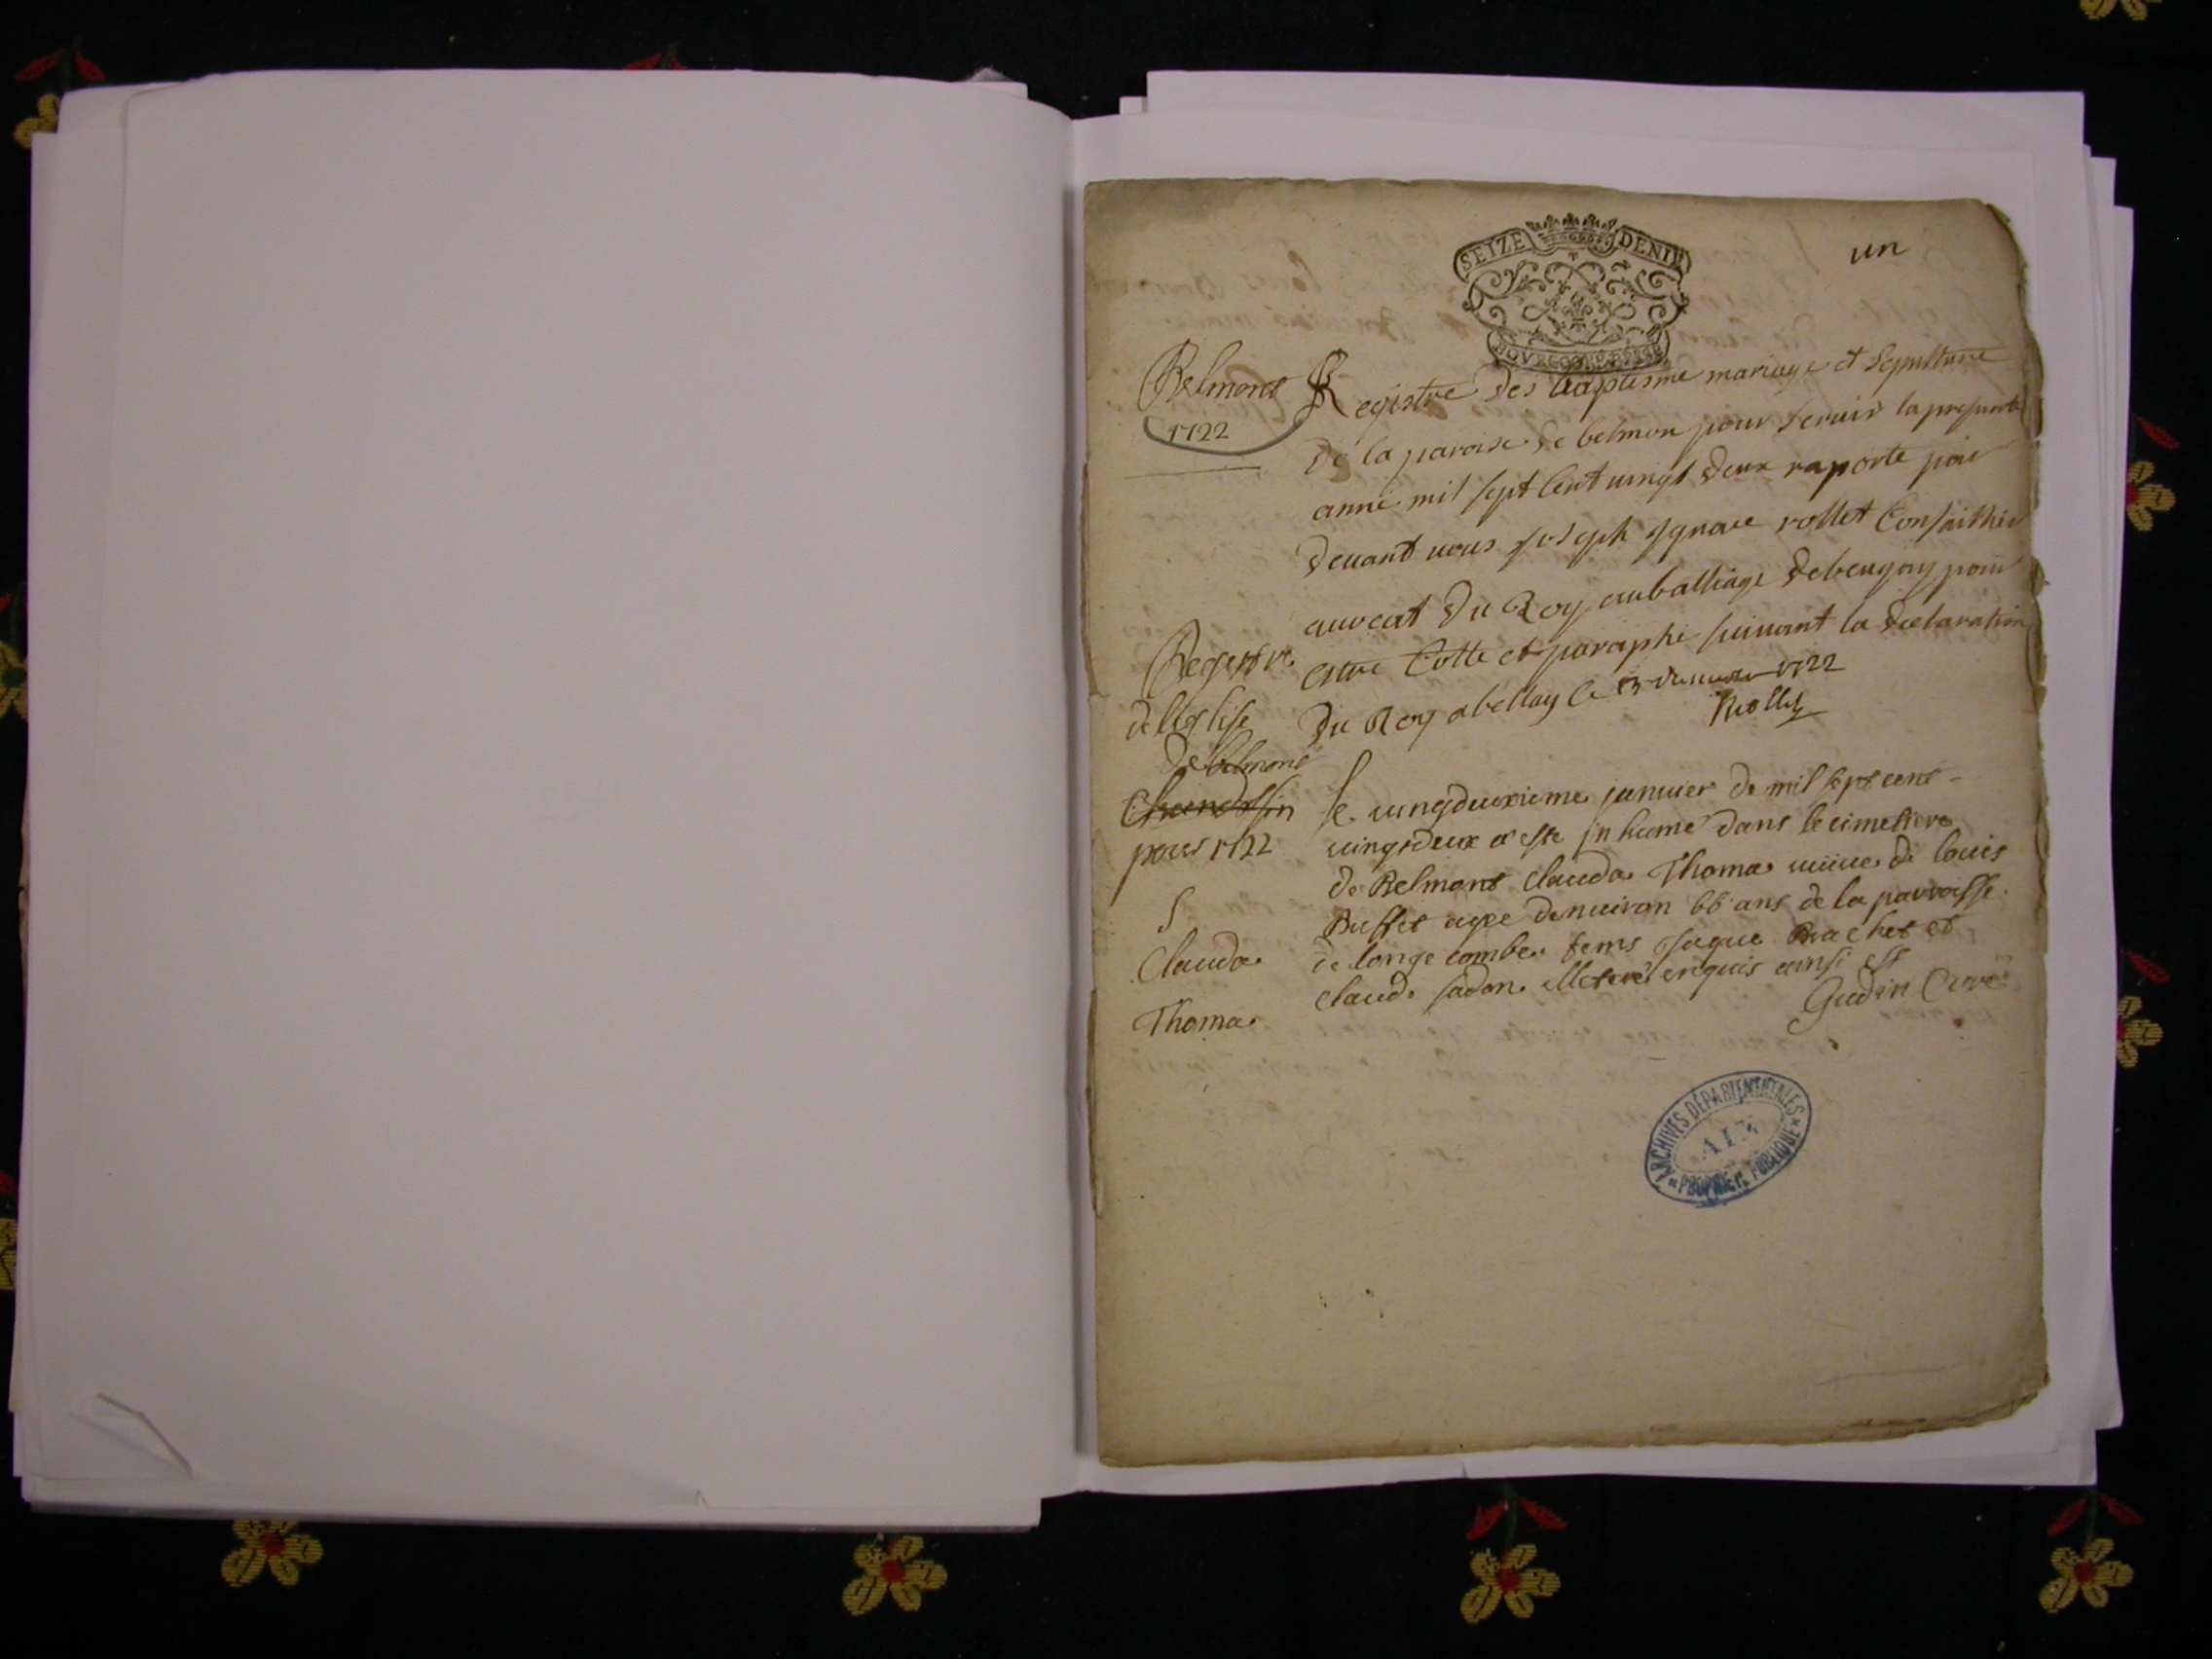 SEIZE DENIE
un
BOURGOGNE BRESSE
Belmont
1722
Registre des baptisme mariage et sepulture
de la paroise de belmon pour seruir la presente
anné mil sept cent uingt deux raporte par
deuant nous joseph ignace rollet Consailhier
auocat du Roy au balliage debeugey pour
estre Cotte et paraphé suiuant la declaration
du Roy a bellay le 1722
Rollet
Regestre
de l'Eglise
de belmont
pour 1722
S
Clauda
Thoma
le uingdeuxieme januier de mil sept cent
uingtdeux a esté jnhumé dans le cimetiere
de Belmont Clauda Thoma uéüue de louis
Buffet agee denuiron 66 ans de la parroisse
de longe combe tems Jaque Brachet et
claude jadon illeteré enquis ainsi est
Gudin Curé
ARCHIVES DÉPARTEMENTALES
AIN
PROPRIÉTÉ PUBLIQUE